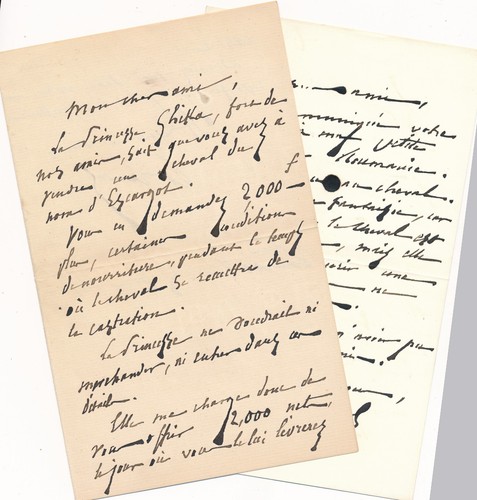 Mon cher ami,
La Princesse Ghika, fort de
nos amies, sait que vous avez à
vendre un cheval du
nom d'Escargot.
Vous en demandez 2,000 f
plus, certaines conditions
de nourriture, pendant le temps
où le cheval se remettra de
la castration.
La Princesse ne voudrait ni
marchander, ni entrer dans ces
détails.
Elle me charge donc de
vous offrir 2,000 nets,
le jour où vous le lui livrerez
ami,
votre
petite
Roumanie.
au cheval.
fantaisie, car
le cheval est
mais elle
une
ne
pas